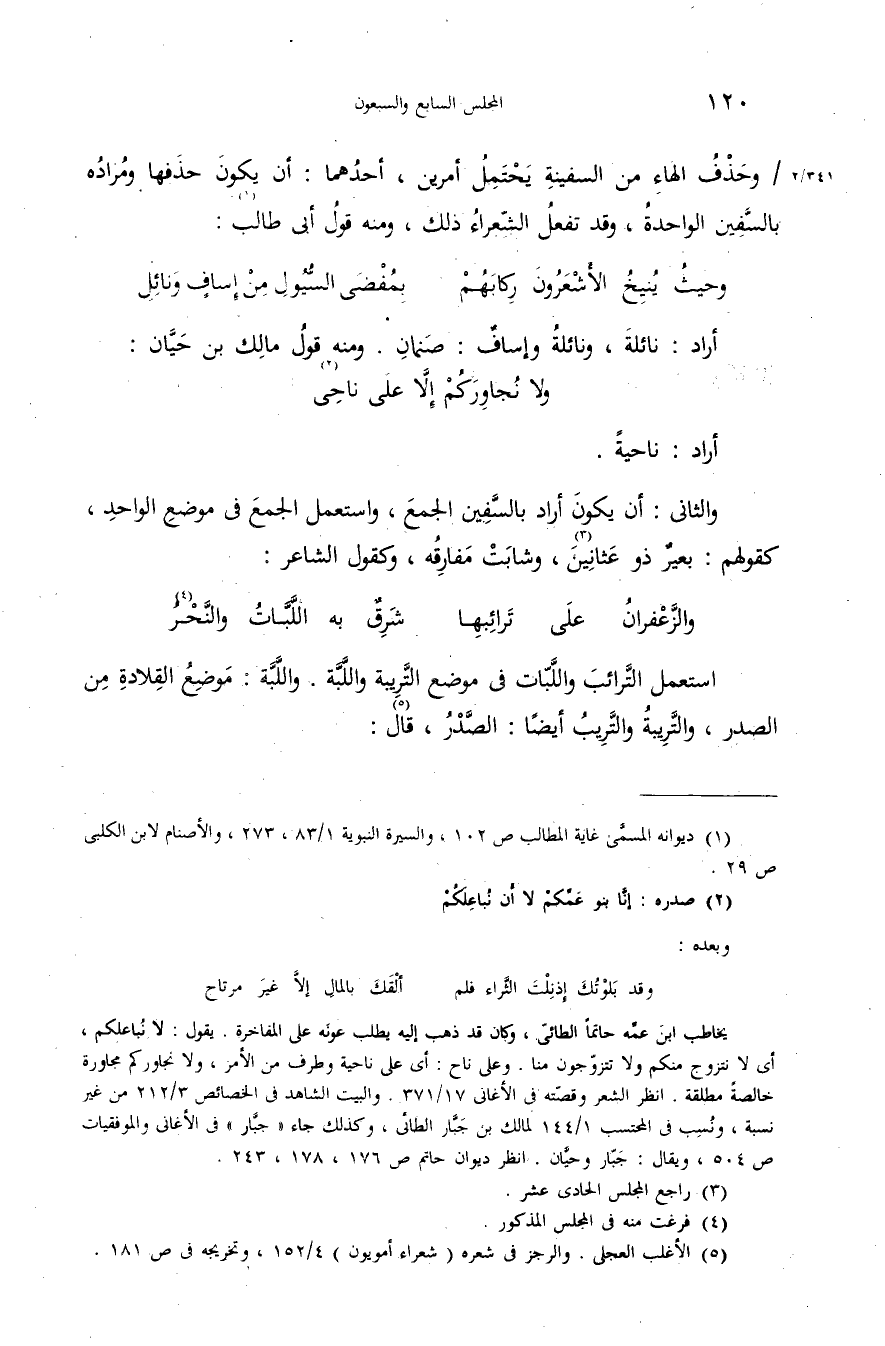 ١٢٠ المجلس السابع والسبعون
٢/٣٤١ / وحَذْفُ الهاءِ من السفينةِ يَحْتَمِلُ أمرين ، أحدُهما : أن يكونَ حذَفها ومُرادُه
بالسَّفِين الواحدةُ ، وقد تفعلُ الشّعراءُ ذلك ، ومنه قولُ أبى طالب (١) :
وحيثُ يُنِيخُ الأَشْعَرُونَ رِكابَهُمْ بِمُفْضَى السُّيُولِ مِنْ إسافٍ وَنائِلِ
أراد : نائلةَ ، ونائلةُ وإسافٌ : صَنمَانِ . ومنه قولُ مالِك بن حَيَّان :
ولا نُجاوِرَكُمْ إلَّا علَى ناحِى (٢)
أراد : ناحيةً .
والثانى : أن يكونَ أراد بالسَّفِين الجمعَ ، واستعمل الجمعَ فى موضعِ الواحدِ ،
كقولهم : بعيرٌ ذو عَثانِينَ (٣) ، وشابَتْ مَفارِقُه ، وكقول الشاعر :
والزَّعْفرانُ علَى تَرائِبِها شَرِقٌ به اللَّبَّاتُ والنَّحْرُ (٤)
استعمل التَّرائبَ واللَّبّات فى موضع التَّرِيبة واللَّبَّة . واللَّبّة : مَوضِعُ القِلادةِ مِن
الصدر ، والتَّرِيبةُ والتَّرِيبُ أيضًا : الصَّدْرُ ، قال (٥) :
(١) ديوانه المسمَّى غاية المطالب ص ١٠٢ ، والسيرة النبوية ٨٣/١ ، ٢٧٣ ، والأصنام لابن الكلبى
ص ٢٩ .
(٢) صدره : إنَّا بنو عَمِّكمْ لا أن نُباعِلَكُمْ
وبعده :
وقد بَلَوْتُكَ إذنِلْتَ الثَّراء فلم ألْقَكَ بالمالِ إلاَّ غيرَ مرتاح
يخاطب ابنَ عمِّه حاتماً الطائىّ ، وكان قد ذهب إليه يطلب عونَه على المفاخرة . يقول : لا نُباعلكم ،
أى لا نتزوج منكم ولا تتزوّجون منا . وعلى ناح : أى على ناحية وطرف من الأمر ، ولا نجاوركم مجاورة
خالصةً مطلقة . انظر الشعر وقصّته فى الأغانى ٣٧١/١٧ . والبيت الشاهد فى الخصائص ٢١٢/٣ من غير
نسبة ، ونُسِب فى المحتسب ١٤٤/١ لمالك بن جَبَّار الطائى ، وكذلك جاء « جبَّار » فى الأغانى والموفقيات
ص ٥٠٤ ، ويقال : جَبّار وحيَّان . انظر ديوان حاتم ص ١٧٦ ، ١٧٨ ، ٢٤٣ .
(٣) راجع المجلس الحادى عشر .
(٤) فرغت منه فى المجلس المذكور .
(٥) الأغلب العجلى . والرجز فى شعره ( شعراء أمويون ) ١٥٢/٤ ، وتخريجه فى ص ١٨١ .